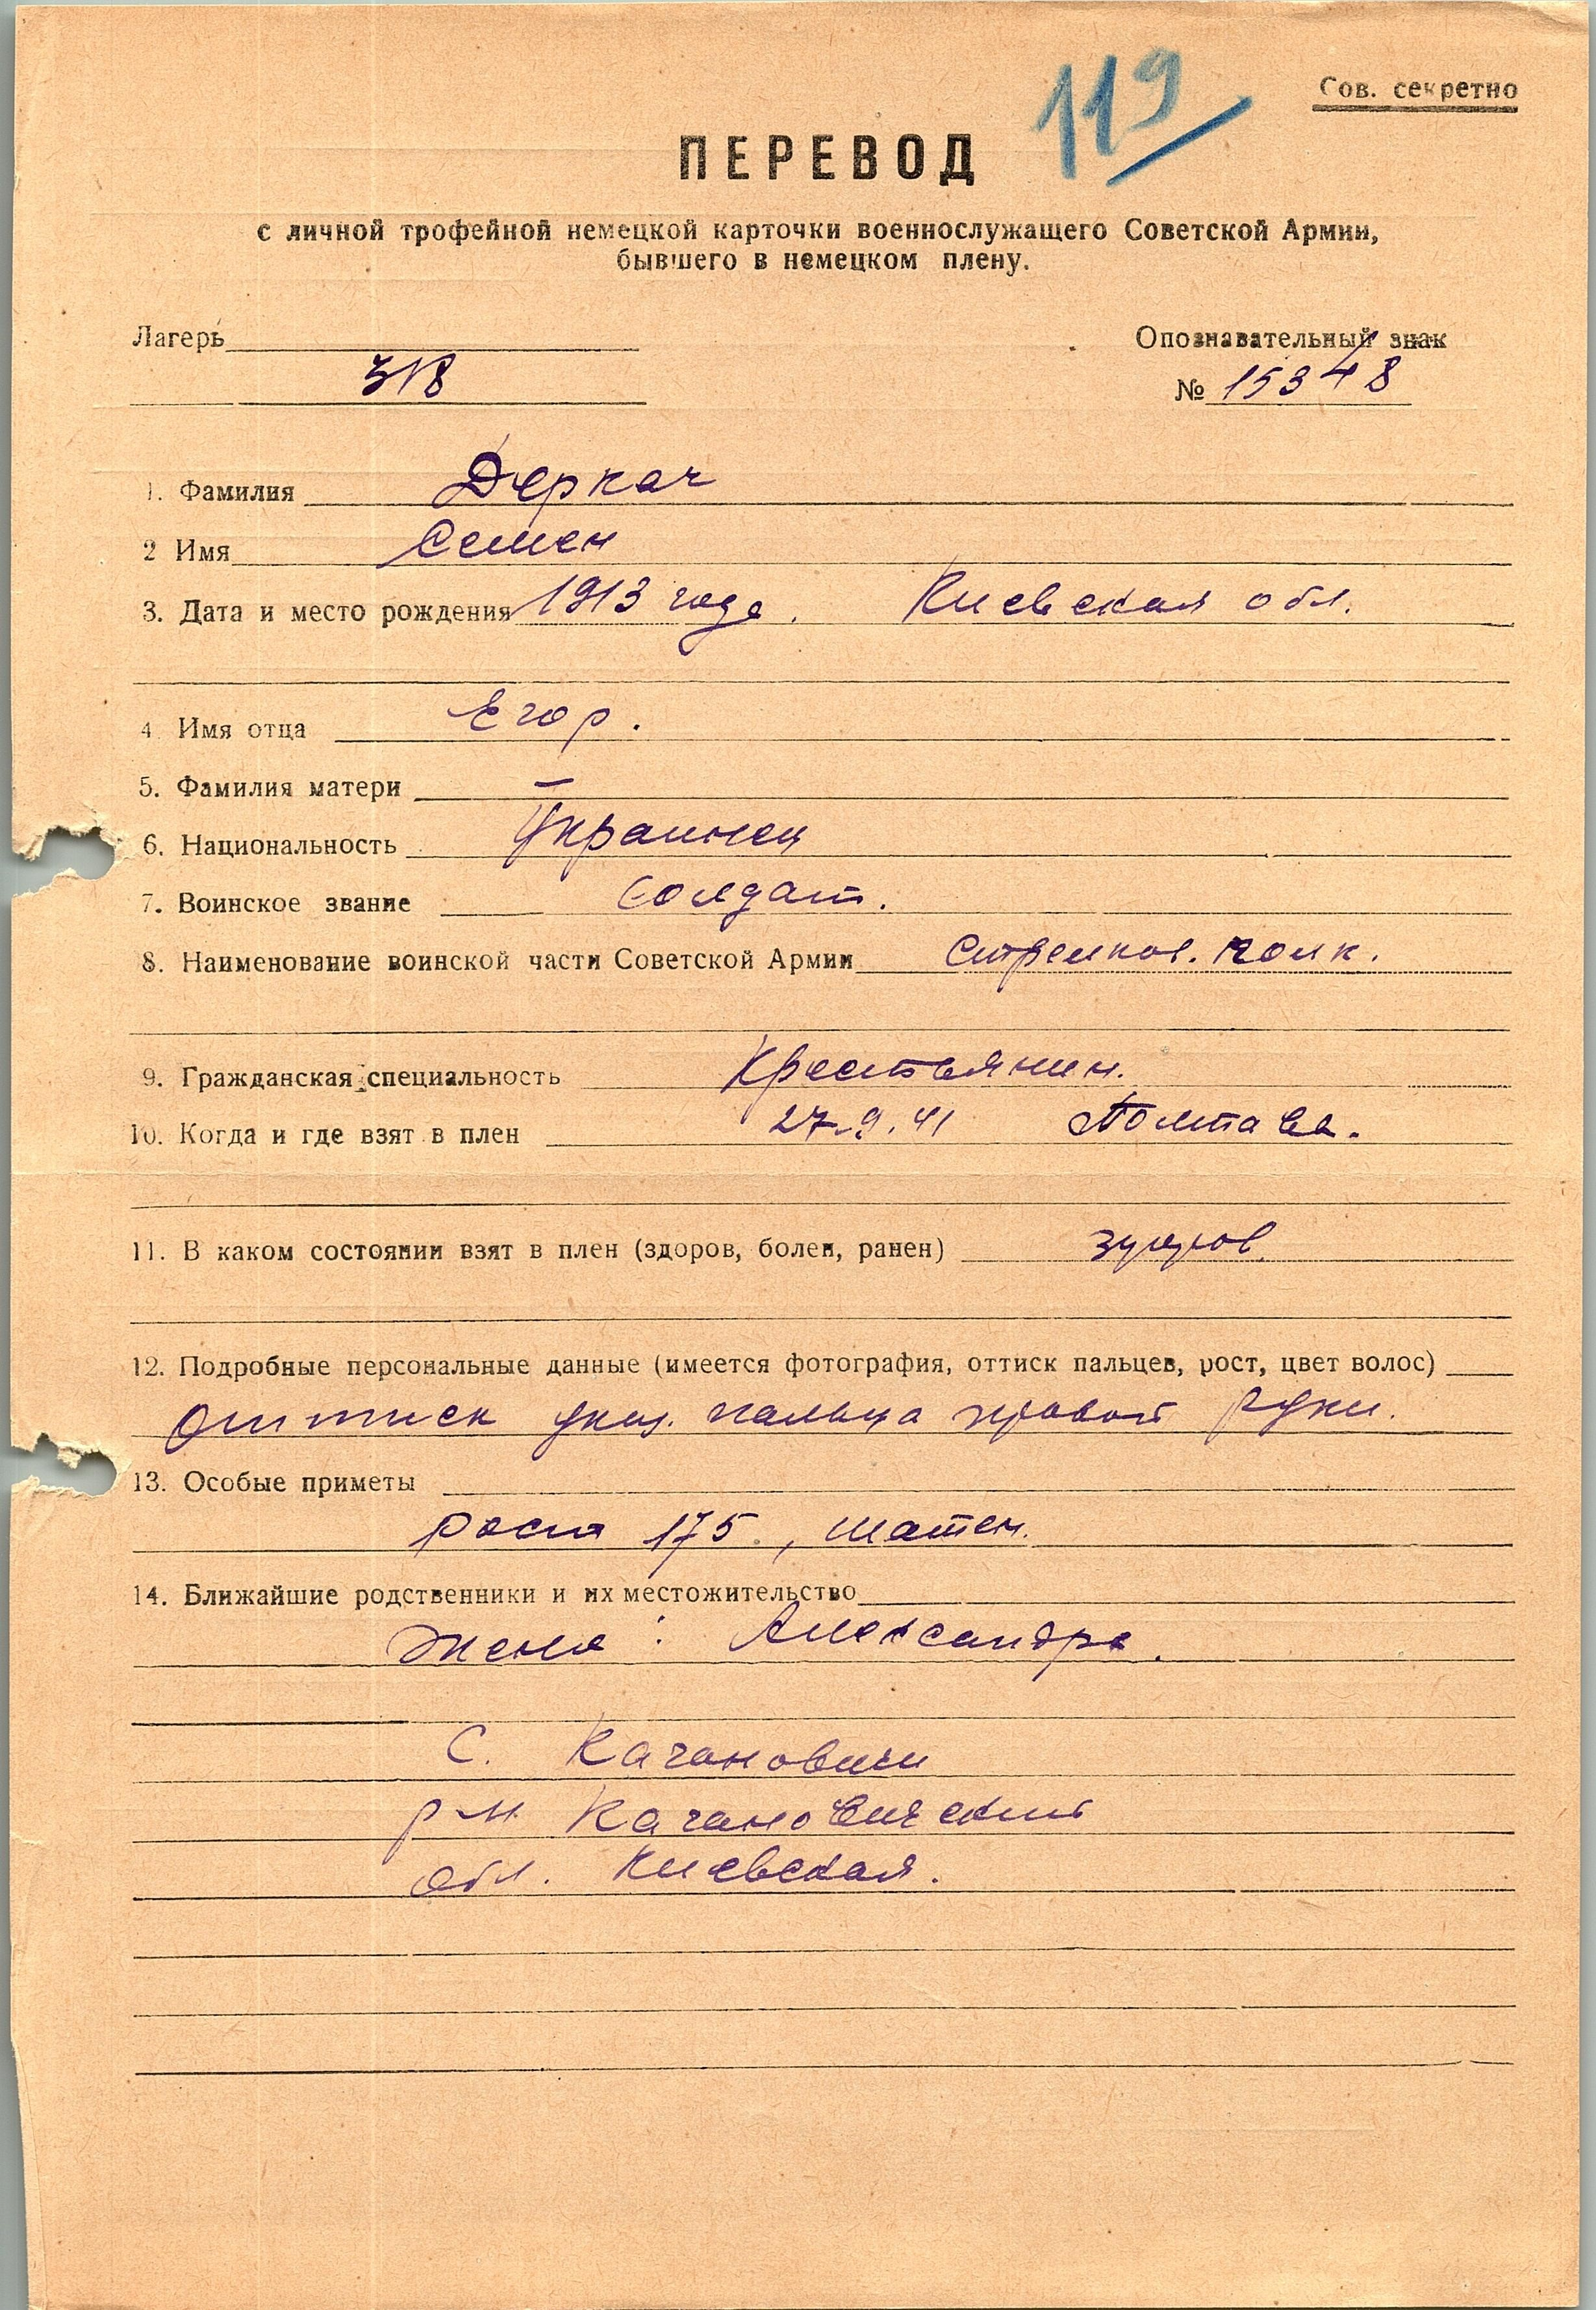 119
Сов. секретно
ПЕРЕВОД
с личной трофейной немецкой карточки военнослужащего Советской Армии,
бывшего в немецком плену.
Лагерь Опознавательный знак
318 № 15348
1. Фамилия Деркач
2 Имя Семен
3. Дата и место рождения 1913 года. Киевская обл.
4 Имя отца Егор.
5. Фамилия матери —
6. Национальность Украинец
7. Воинское звание Солдат.
8. Наименование воинской части Советской Армии Стрелков. полк.
9. Гражданская специальность Крестьянин.
10. Когда и где взят в плен 27.9.41 Полтава.
11. В каком состоянии взят в плен (здоров, болен, ранен) здоров.
12. Подробные персональные данные (имеется фотография, оттиск пальцев, рост, цвет волос)
Оттиск указ. пальца правой руки.
13. Особые приметы
рост 175, шатен.
14. Ближайшие родственники и их местожительство
Жена: Александра.
С. Качановичи
р-н Качановический
обл. Киевская.